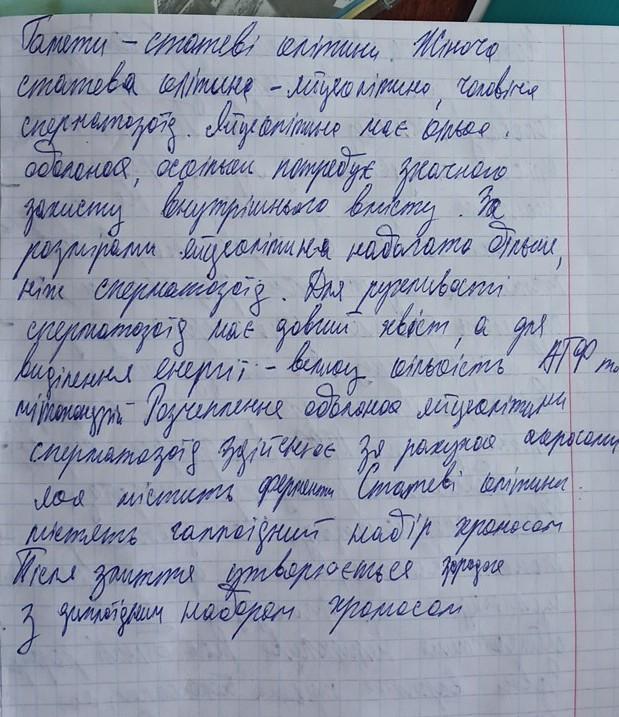 Гамети – статеві клітини. Жіноча
статева клітина – яйцеклітина, чоловіча
сперматозоїд. Яйцеклітина має кілька
оболонок, оскільки потребує значного
захисту внутрішнього вмісту. За
розмірами яйцеклітина набагато більша,
ніж сперматозоїд. Для рухливості
сперматозоїд має довгий хвіст, а для
виділення енергії – велику кількість АТФ та
мітохондрій Розчеплення оболонок яйцеклітини
сперматозоїд здійснює за рахунок акросоми
яка містить ферменти Статеві клітини
містять гаплоїдний набір хромосом
Після злиття утворюється зародок
з диплоїдним набором хромосом